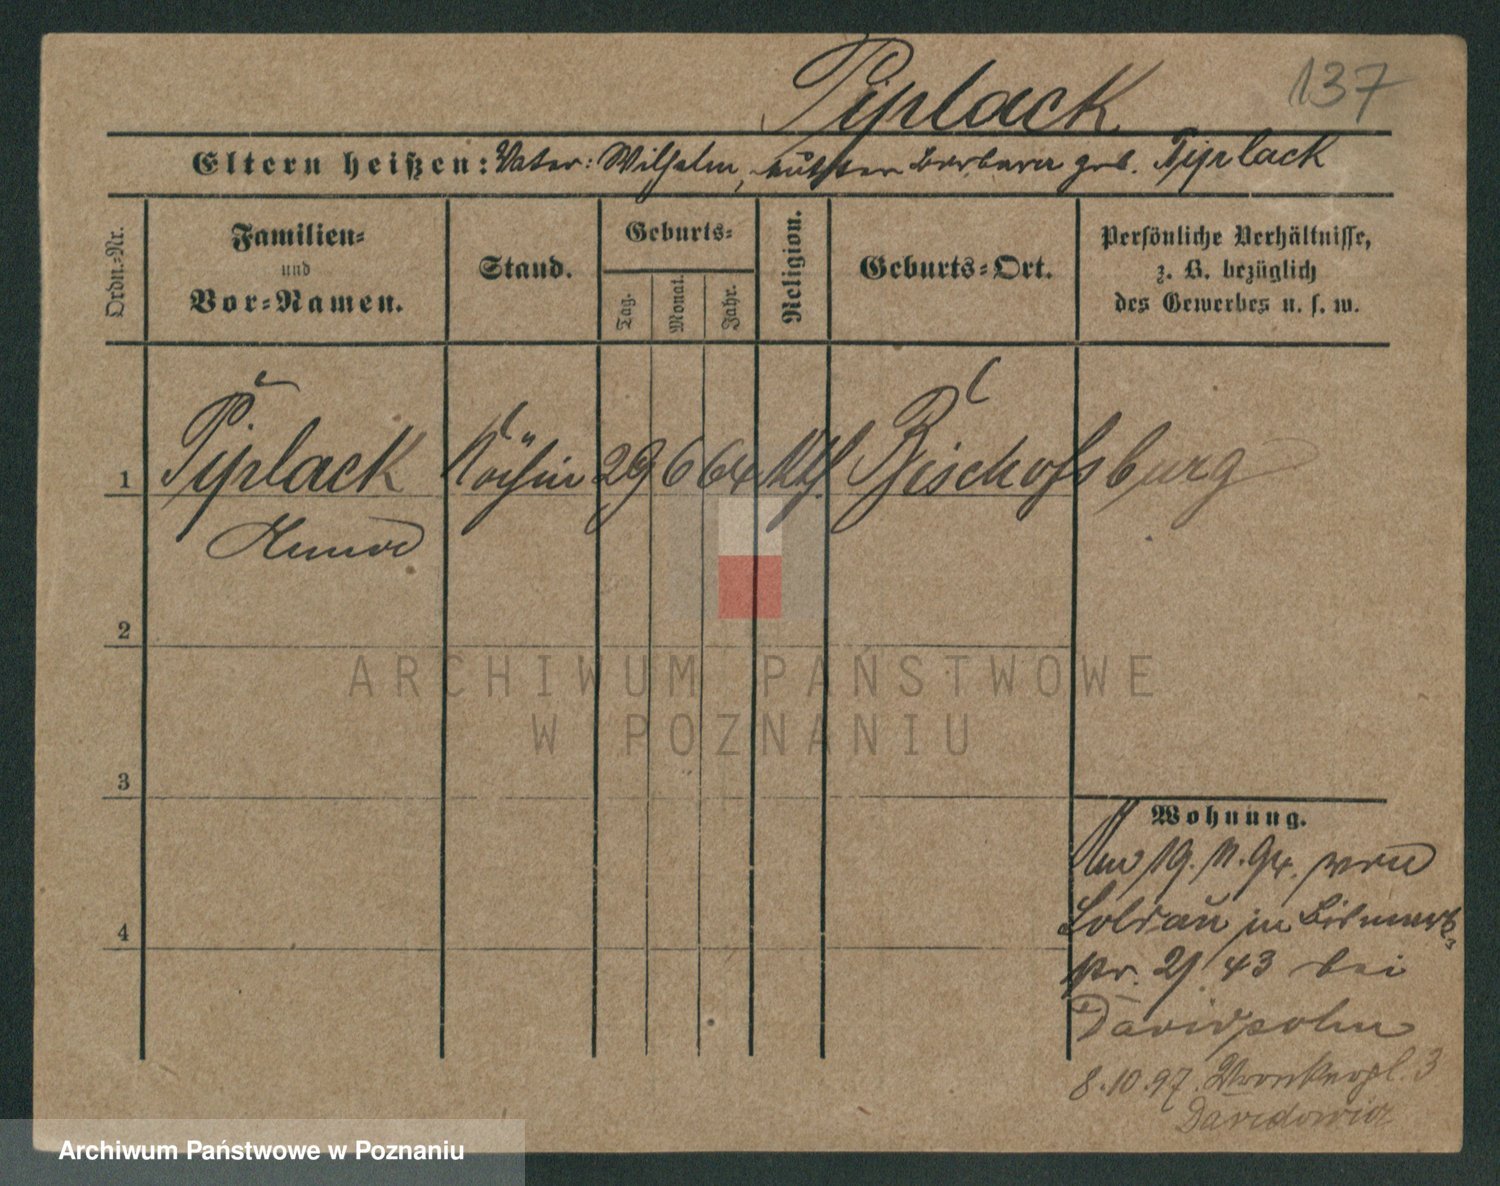 Piplack
137
Eltern heißen: Vater: Wilhelm, Mutter Barbara geb. Piplack
Ordn.-Nr.
Familien-
und
Vor-Namen.
Stand.
Geburts-
Tag.
Monat.
Jahr.
Religion.
Geburts-Ort.
Persönliche Verhältnisse,
z. B. bezüglich
des Gewerbes u. s. w.
1 Piplack Köchin 29 6 64 kth. Bischofsburg
Anna
2
3
4
Wohnung.
Am 19. 11. 94. von
Soldau in
43 bei
Davidsohn
8.10.97. 3
Davidowicz
ARCHIWUM PAŃSTWOWE
W POZNANIU
Archiwum Państwowe w Poznaniu